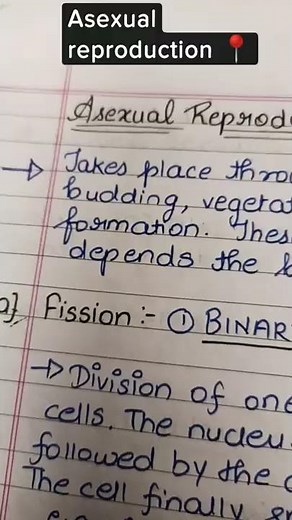 Asexual
reproduction 📍
Asexual Reprod
→ Takes place thro
budding, vegeta
formation. Thes
depends the
a] Fission :- ① BINAR
→ Division of one
cells. The nucleu
followed by the
The cell finally